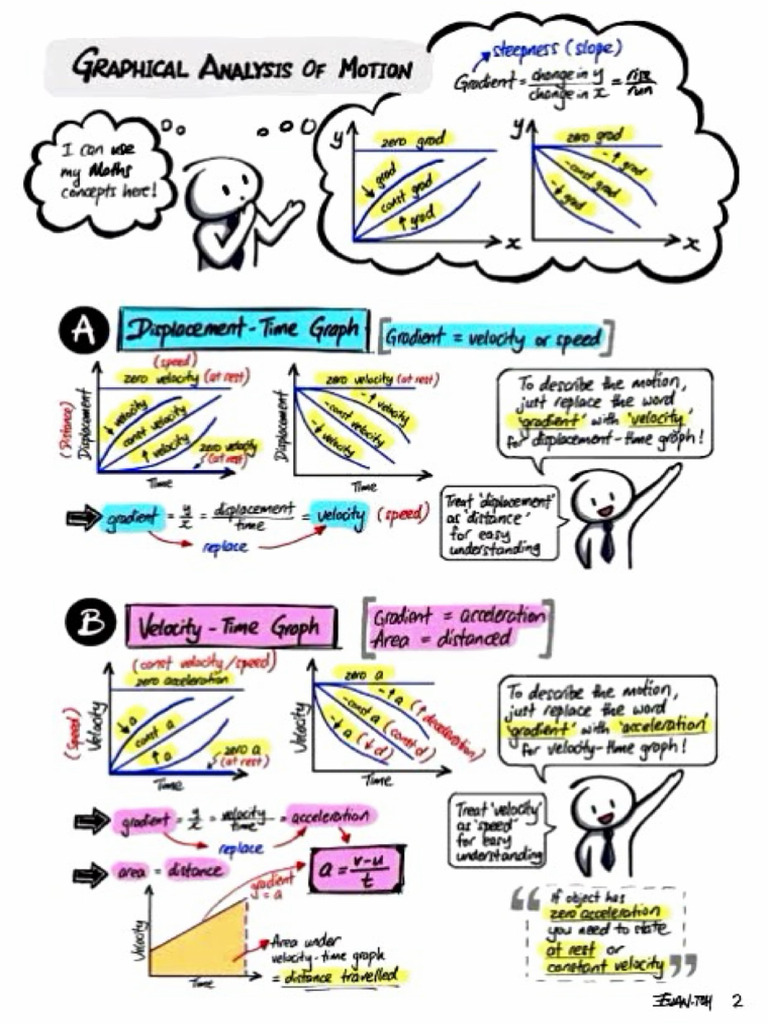 GRAPHICAL ANALYSIS OF MOTION
steepness (slope)
Gradient = change in y / change in x = rise / run
I can use
my Maths
concepts here!
y
zero grad
↓ grad
const grad
↑ grad
x
y
zero grad
-↑ grad
-const grad
-↓ grad
x
A
Displacement-Time Graph
[Gradient = velocity or speed]
(speed)
zero velocity (at rest)
↓ velocity
const velocity
↑ velocity
zero velocity
(at rest)
(Distance)
Displacement
Time
zero velocity (at rest)
-↑ velocity
-const velocity
-↓ velocity
Displacement
Time
To describe the motion,
just replace the word
'gradient' with 'velocity'
for displacement-time graph!
Treat 'displacement'
as 'distance'
for easy
understanding
gradient = y/x = displacement/time = velocity (speed)
replace
B
Velocity-Time Graph
[Gradient = acceleration
Area = distanced]
(const velocity/speed)
zero acceleration
↓ a
const a
↑ a
zero a
(at rest)
(Speed)
Velocity
Time
zero a
-↑ a (↑ deceleration)
-const a (const d)
-↓ a (↓ d)
Velocity
Time
To describe the motion,
just replace the word
'gradient' with 'acceleration'
for velocity-time graph!
Treat 'velocity'
as 'speed'
for easy
understanding
gradient = y/x = velocity/time = acceleration
replace
area = distance
a = v-u / t
gradient
= a
Velocity
Time
Area under
velocity-time graph
= distance travelled
"If object has
zero acceleration
you need to state
at rest or
constant velocity"
EVAN.TOH 2